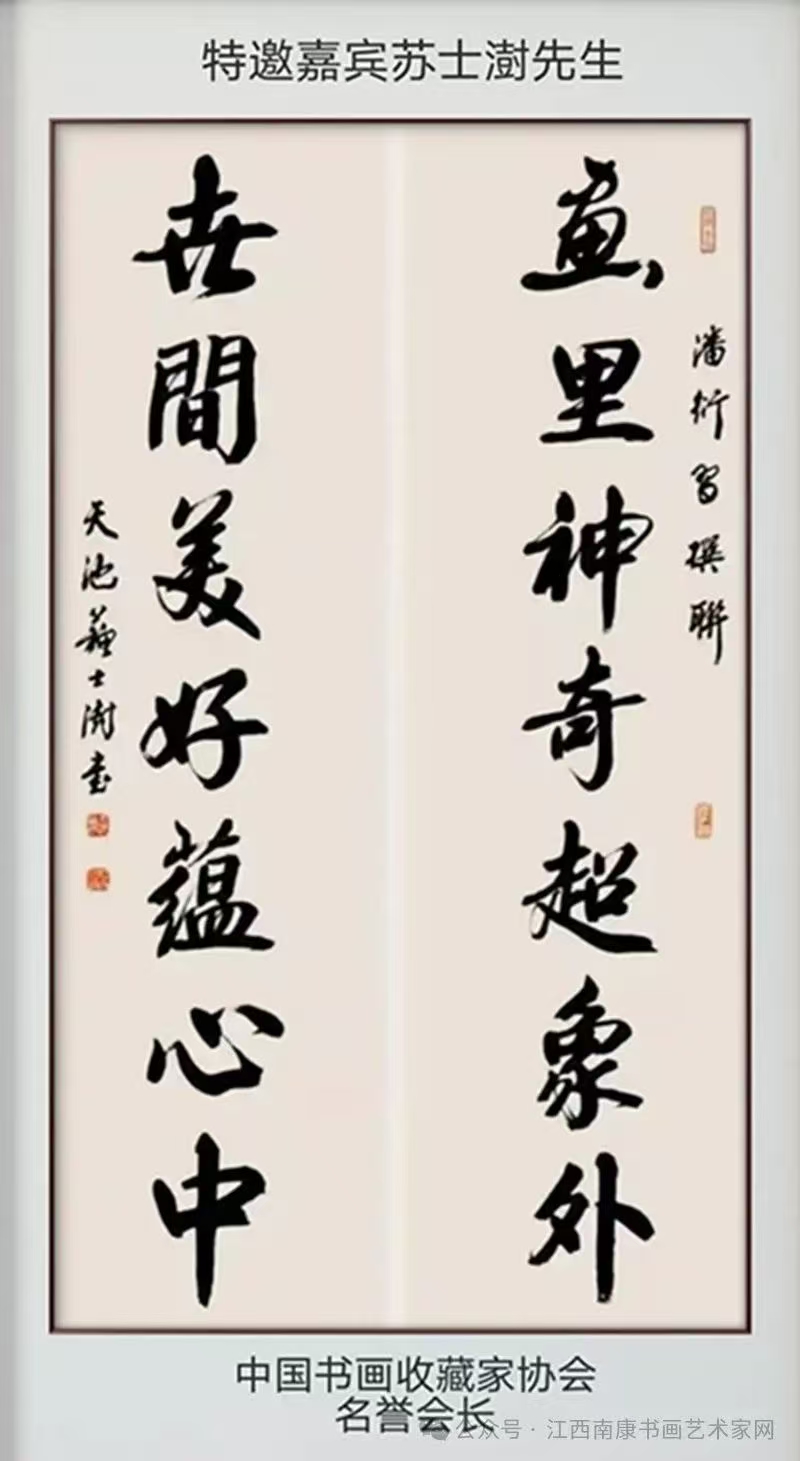 特邀嘉宾苏士澍先生
潘衍習撰聯
畫里神奇超象外
世間美好蘊心中
天池蘇士澍書
中国书画收藏家协会
名誉会长
公众号·江西南康书画艺术家网